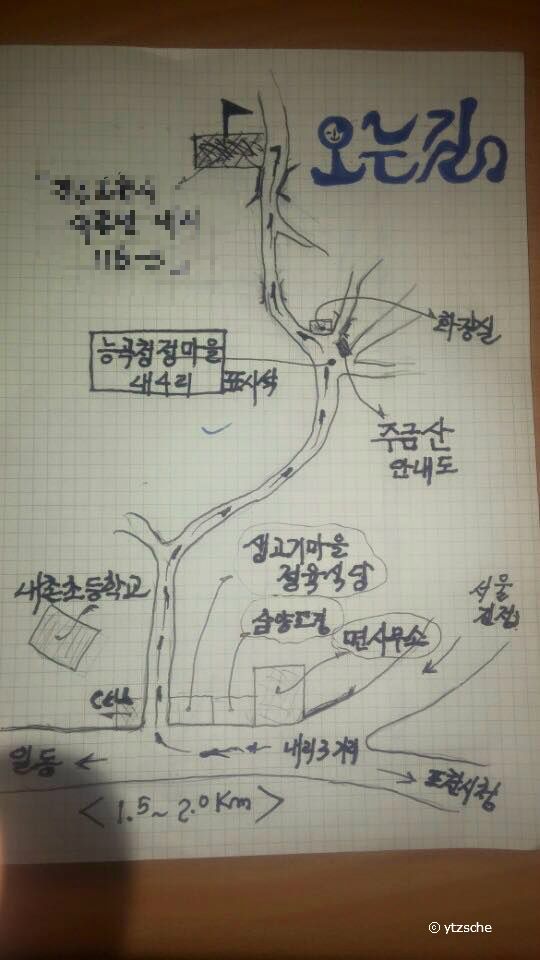 오는길
화장실
능곡청정마을
내4리
표시석
주금산
안내도
생고기마을
정육식당
내촌초등학교
면사무소
서울
일동
내리3거리
포천시청
< 1.5~2.0Km >
ⓒ ytzsche